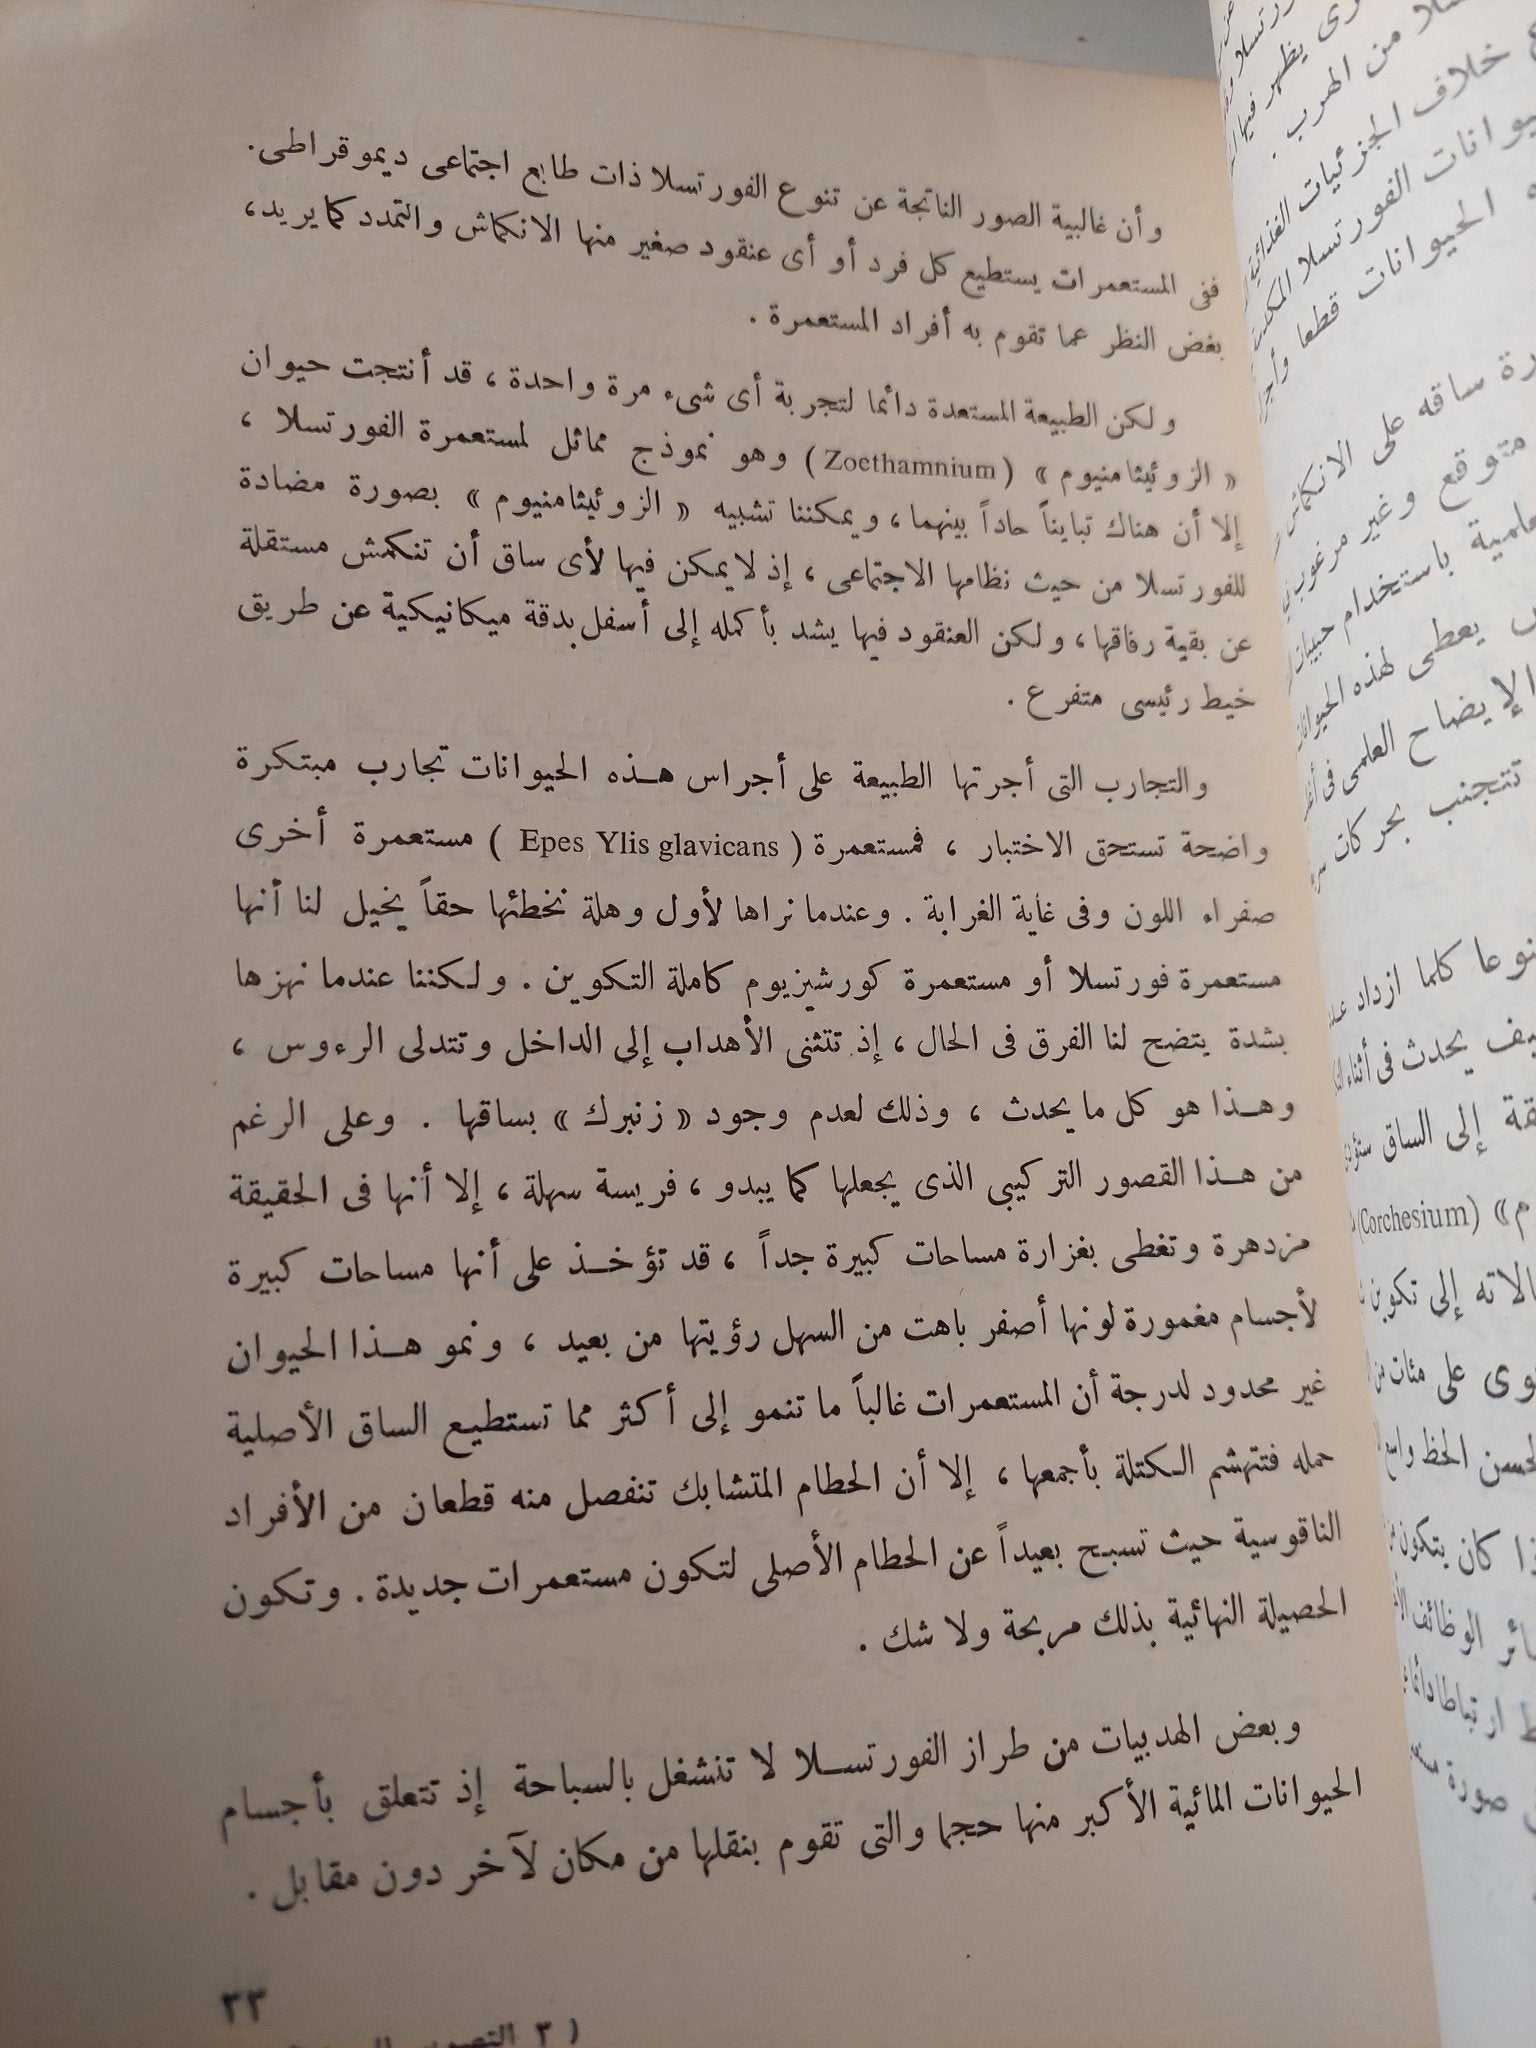 وأن غالبية الصور الناتجة عن تنوع الفورتسلا ذات طابع اجتماعى ديموقراطى.
ففى المستعمرات يستطيع كل فرد أو أى عنقود صغير منها الانكماش والتمدد كما يريد،
بغض النظر عما تقوم به أفراد المستعمرة .
ولكن الطبيعة المستعدة دائما لتجربة أى شىء مرة واحدة ، قد أنتجت حيوان
« الزوئيثامنيوم » (Zoethamnium) وهو نموذج مماثل لمستعمرة الفورتسلا ،
إلا أن هناك تبايناً حاداً بينهما ، ويمكننا تشبيه « الزوئيثامنيوم » بصورة مضادة
للفورتسلا من حيث نظامها الاجتماعى ، إذ لا يمكن فيها لأى ساق أن تنكمش مستقلة
عن بقية رفاقها ، ولكن العنقود فيها يشد بأكمله إلى أسفل بدقة ميكانيكية عن طريق
خيط رئيسى متفرع .
والتجارب التى أجرتها الطبيعة على أجراس هذه الحيوانات تجارب مبتكرة
واضحة تستحق الاختبار ، فمستعمرة ( Epes Ylis glavicans ) مستعمرة أخرى
صفراء اللون وفى غاية الغرابة . وعندما نراها لأول وهلة نخطئها حقاً يخيل لنا أنها
مستعمرة فورتسلا أو مستعمرة كورشيزيوم كاملة التكوين . ولكننا عندما نهزها
بشدة يتضح لنا الفرق فى الحال ، إذ تتثنى الأهداب إلى الداخل وتتدلى الرءوس ،
وهذا هو كل ما يحدث ، وذلك لعدم وجود « زنبرك » بساقها . وعلى الرغم
من هذا القصور التركيبى الذى يجعلها كما يبدو ، فريسة سهلة ، إلا أنها فى الحقيقة
مزدهرة وتغطى بغزارة مساحات كبيرة جداً ، قد تؤخذ على أنها مساحات كبيرة
لأجسام مغمورة لونها أصفر باهت من السهل رؤيتها من بعيد ، ونمو هذا الحيوان
غير محدود لدرجة أن المستعمرات غالباً ما تنمو إلى أكثر مما تستطيع الساق الأصلية
حمله فتتهشم الكتلة بأجمعها ، إلا أن الحطام المتشابك تنفصل منه قطعان من الأفراد
الناقوسية حيث تسبح بعيداً عن الحطام الأصلى لتكون مستعمرات جديدة . وتكون
الحصيلة النهائية بذلك مربحة ولا شك .
وبعض الهدبيات من طراز الفورتسلا لا تنشغل بالسباحة إذ تتعلق بأجسام
الحيوانات المائية الأكبر منها حجما والتى تقوم بنقلها من مكان لآخر دون مقابل .
٣٣
( ٣
من الهرب .
خلاف الجزئيات الغذائية
الفورتسلا
الحيوانات قطعا
ساقه على الانكماش
متوقع وغير مرغوب
باستخدام حبيبات
يعطى لهذه
الإيضاح العلمى فى
تتجنب بحركات
كلما ازداد
يحدث فى أثناء
إلى الساق
م» (Corchesium)
إلى تكوين
على مئات من
الحظ
كان يتكون
الوظائف
ارتباطا
صورة